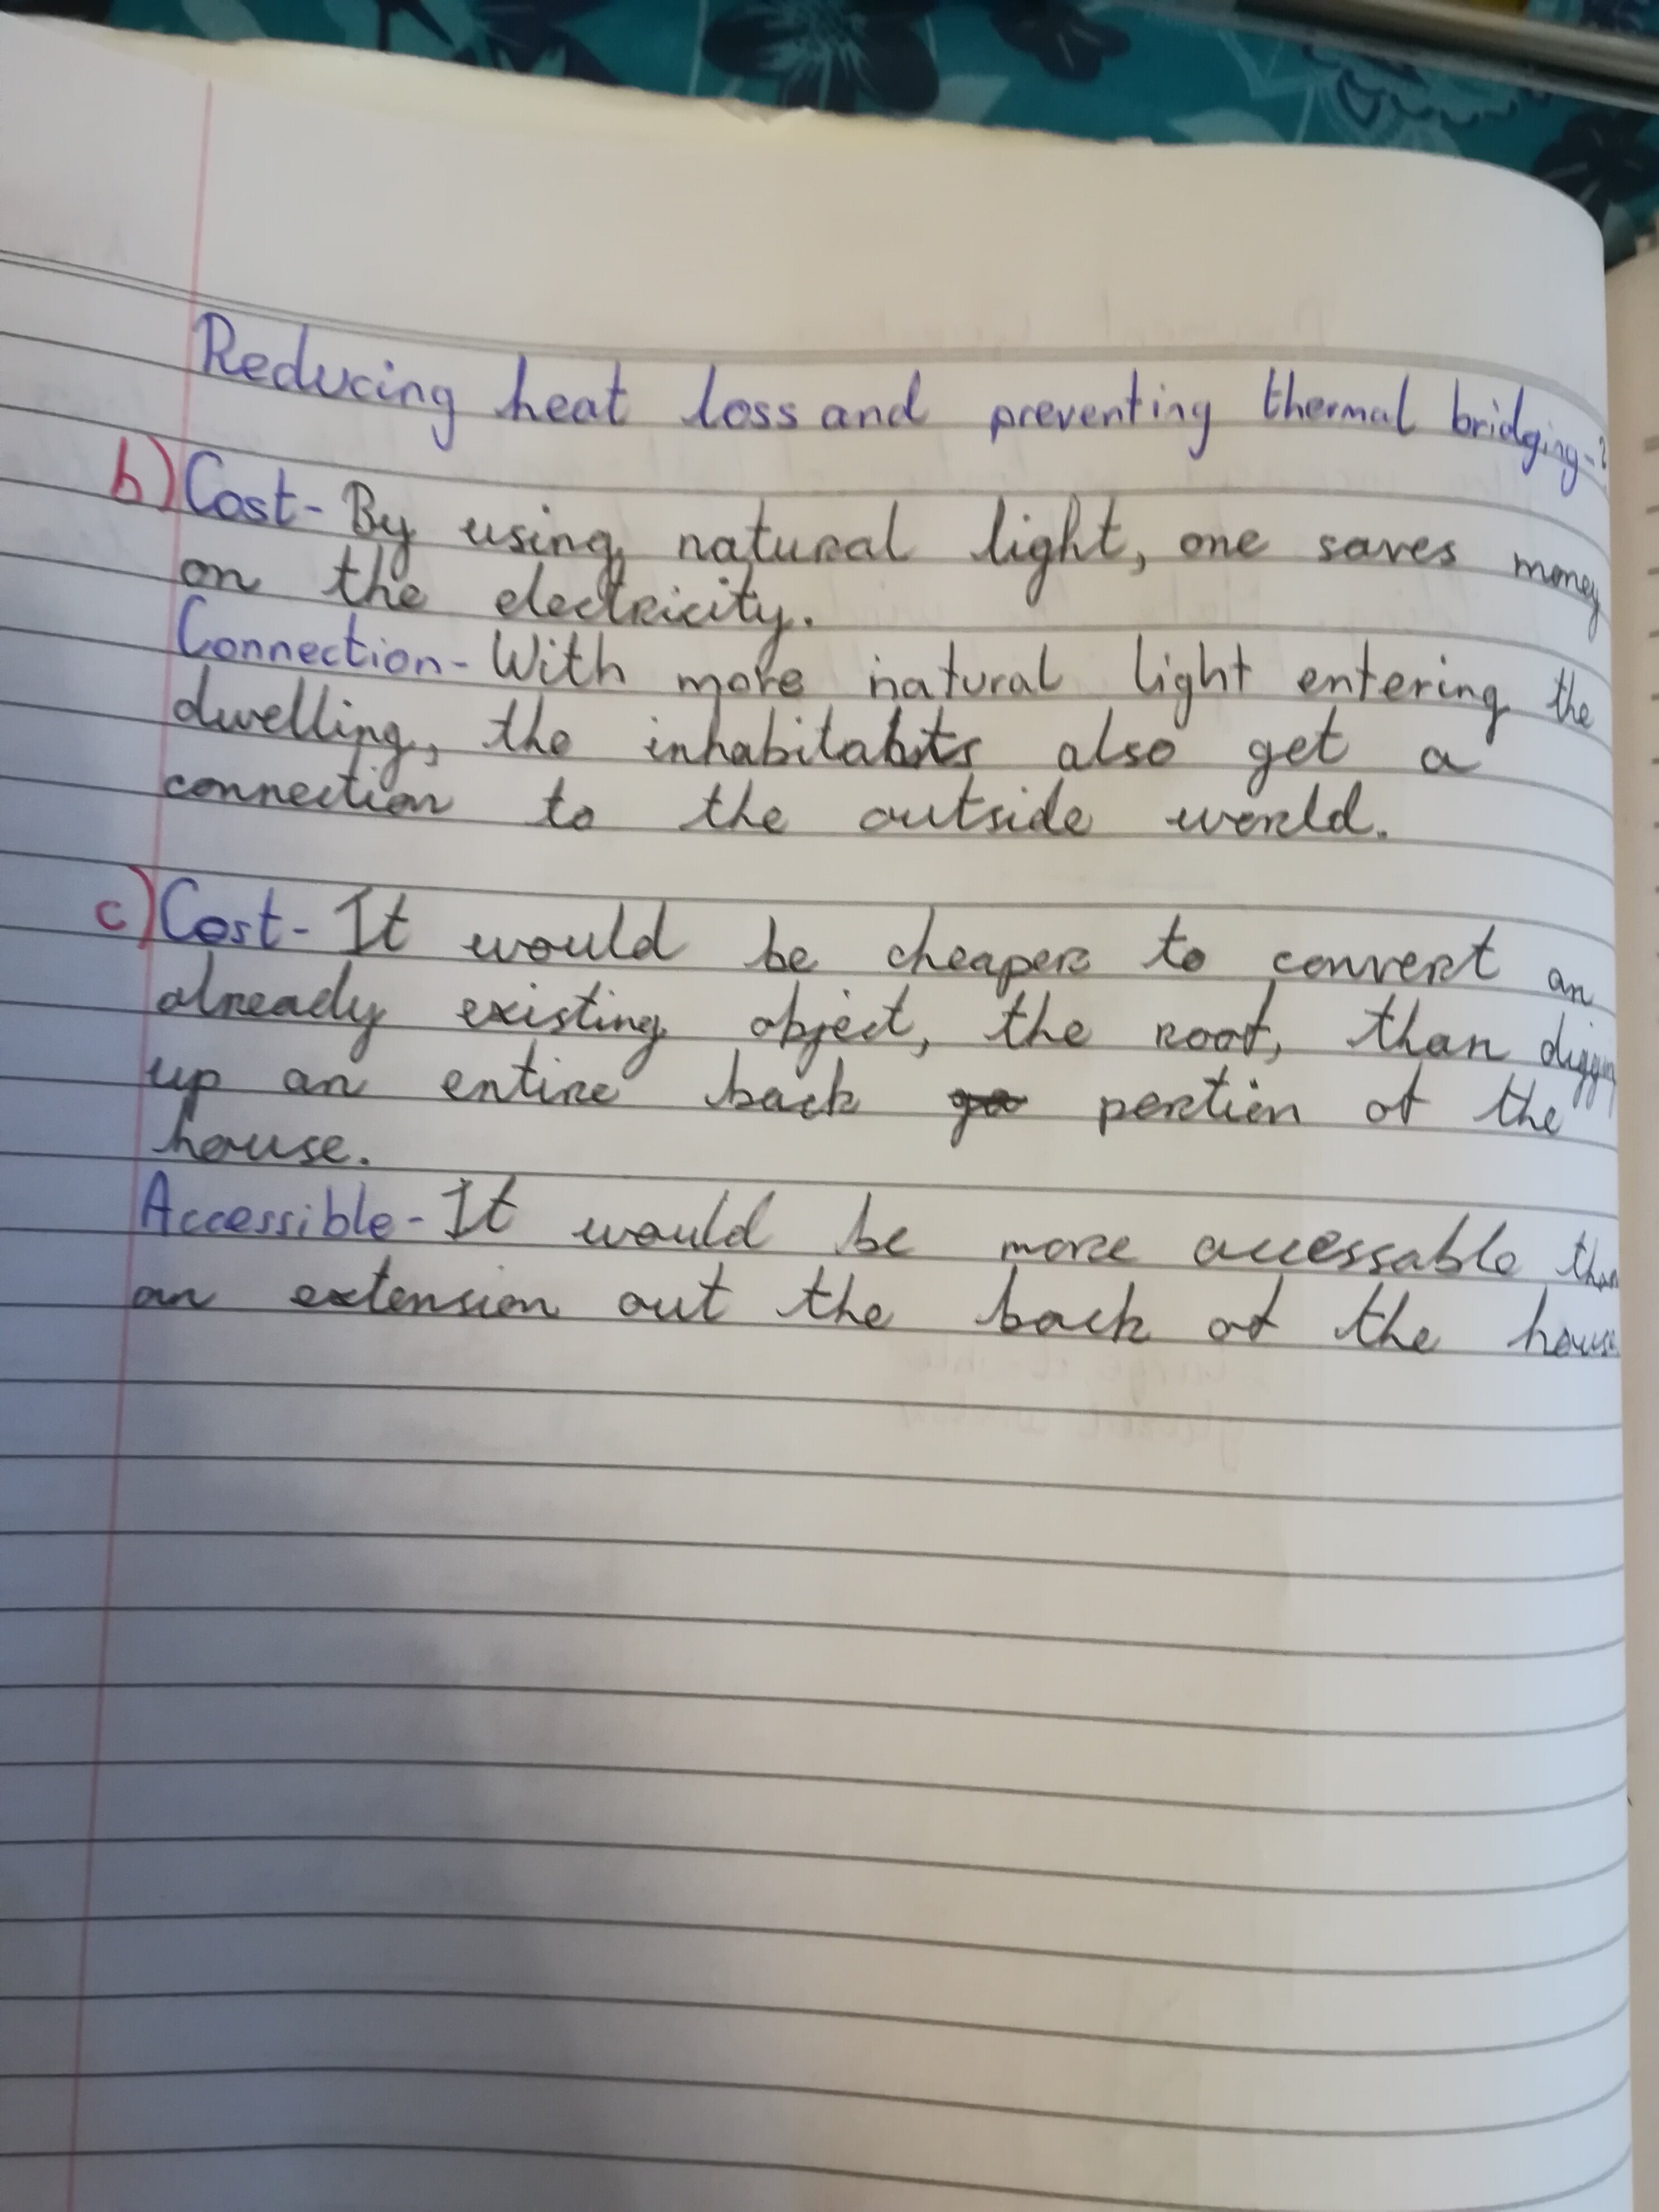 Reducing heat loss and preventing thermal bridging-?
b) Cost- By using natural light, one saves money
on the electricity.
Connection- With more natural light entering the
dwelling, the inhabitats also get a
connection to the outside world.
c) Cost- It would be cheaper to convert an
already existing object, the roof, than digging
up an entire back portion of the
house.
Accessible- It would be more accessable than
an extension out the back of the house